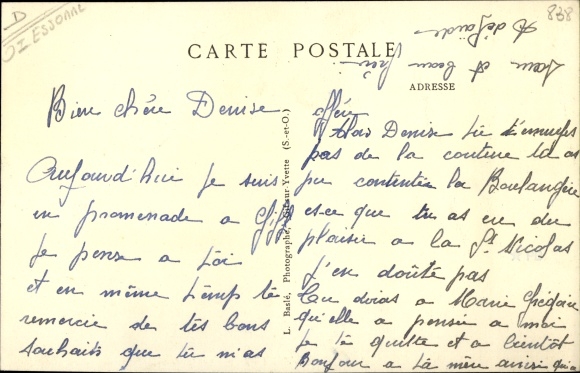 D
91 ESSONNE
838
CARTE POSTALE
ADRESSE
Bien chère Denise
Aujourd'hui je suis
en promenade a Gif
Je pense a toi
et en même temp te
remercie de tes bons
souhaits que tu m'as
L. Baslé, Photographe, Gif-sur-Yvette (S.-et-O.)
offert
Alors Denise tu t'ennuies
pas de la couture tu as
pu contenter la Boulangère
est-ce que tu as eu du
plaisir a la St Nicolas
j'en doute pas
Tu diras a Marie Grégoire
qu'elle a pensée a moi
Je te quitte et a bientôt
Bonjour a ta mère ainsi qu'a
sœur et beau frère